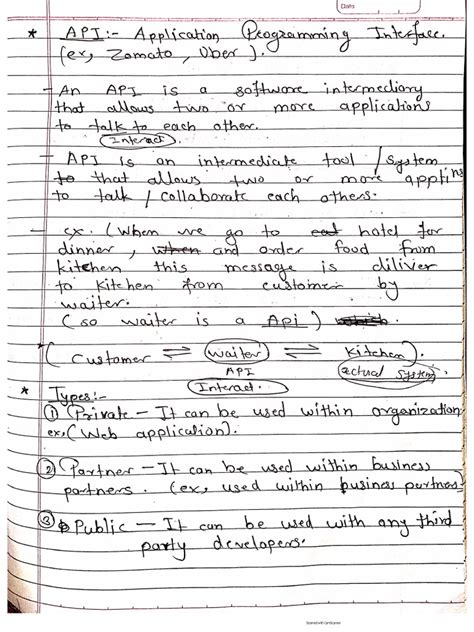 Date
* API:- Application Programming Interface.
(ex, Zomato, Uber).
- An API is a software intermediary
that allows two or more applications
to talk to each other.
(Interact)
- API is an intermediate tool / system
to that allows two or more applins
to talk / collaborate each others.
- ex. (When we go to eat hotel for
dinner, when and order food from
kitchen this message is diliver
to kitchen from customer by
waiter.
(so waiter is a Api) which
(Customer ⇌ waiter ⇌ Kitchen).
API actual system
Interact.
* Types:-
① Private - It can be used within organization
ex, (Web application).
② Partner - It can be used within business
partners. (ex, used within business partners)
③ Public - It can be used with any third
party developers.
Scanned with CamScanner